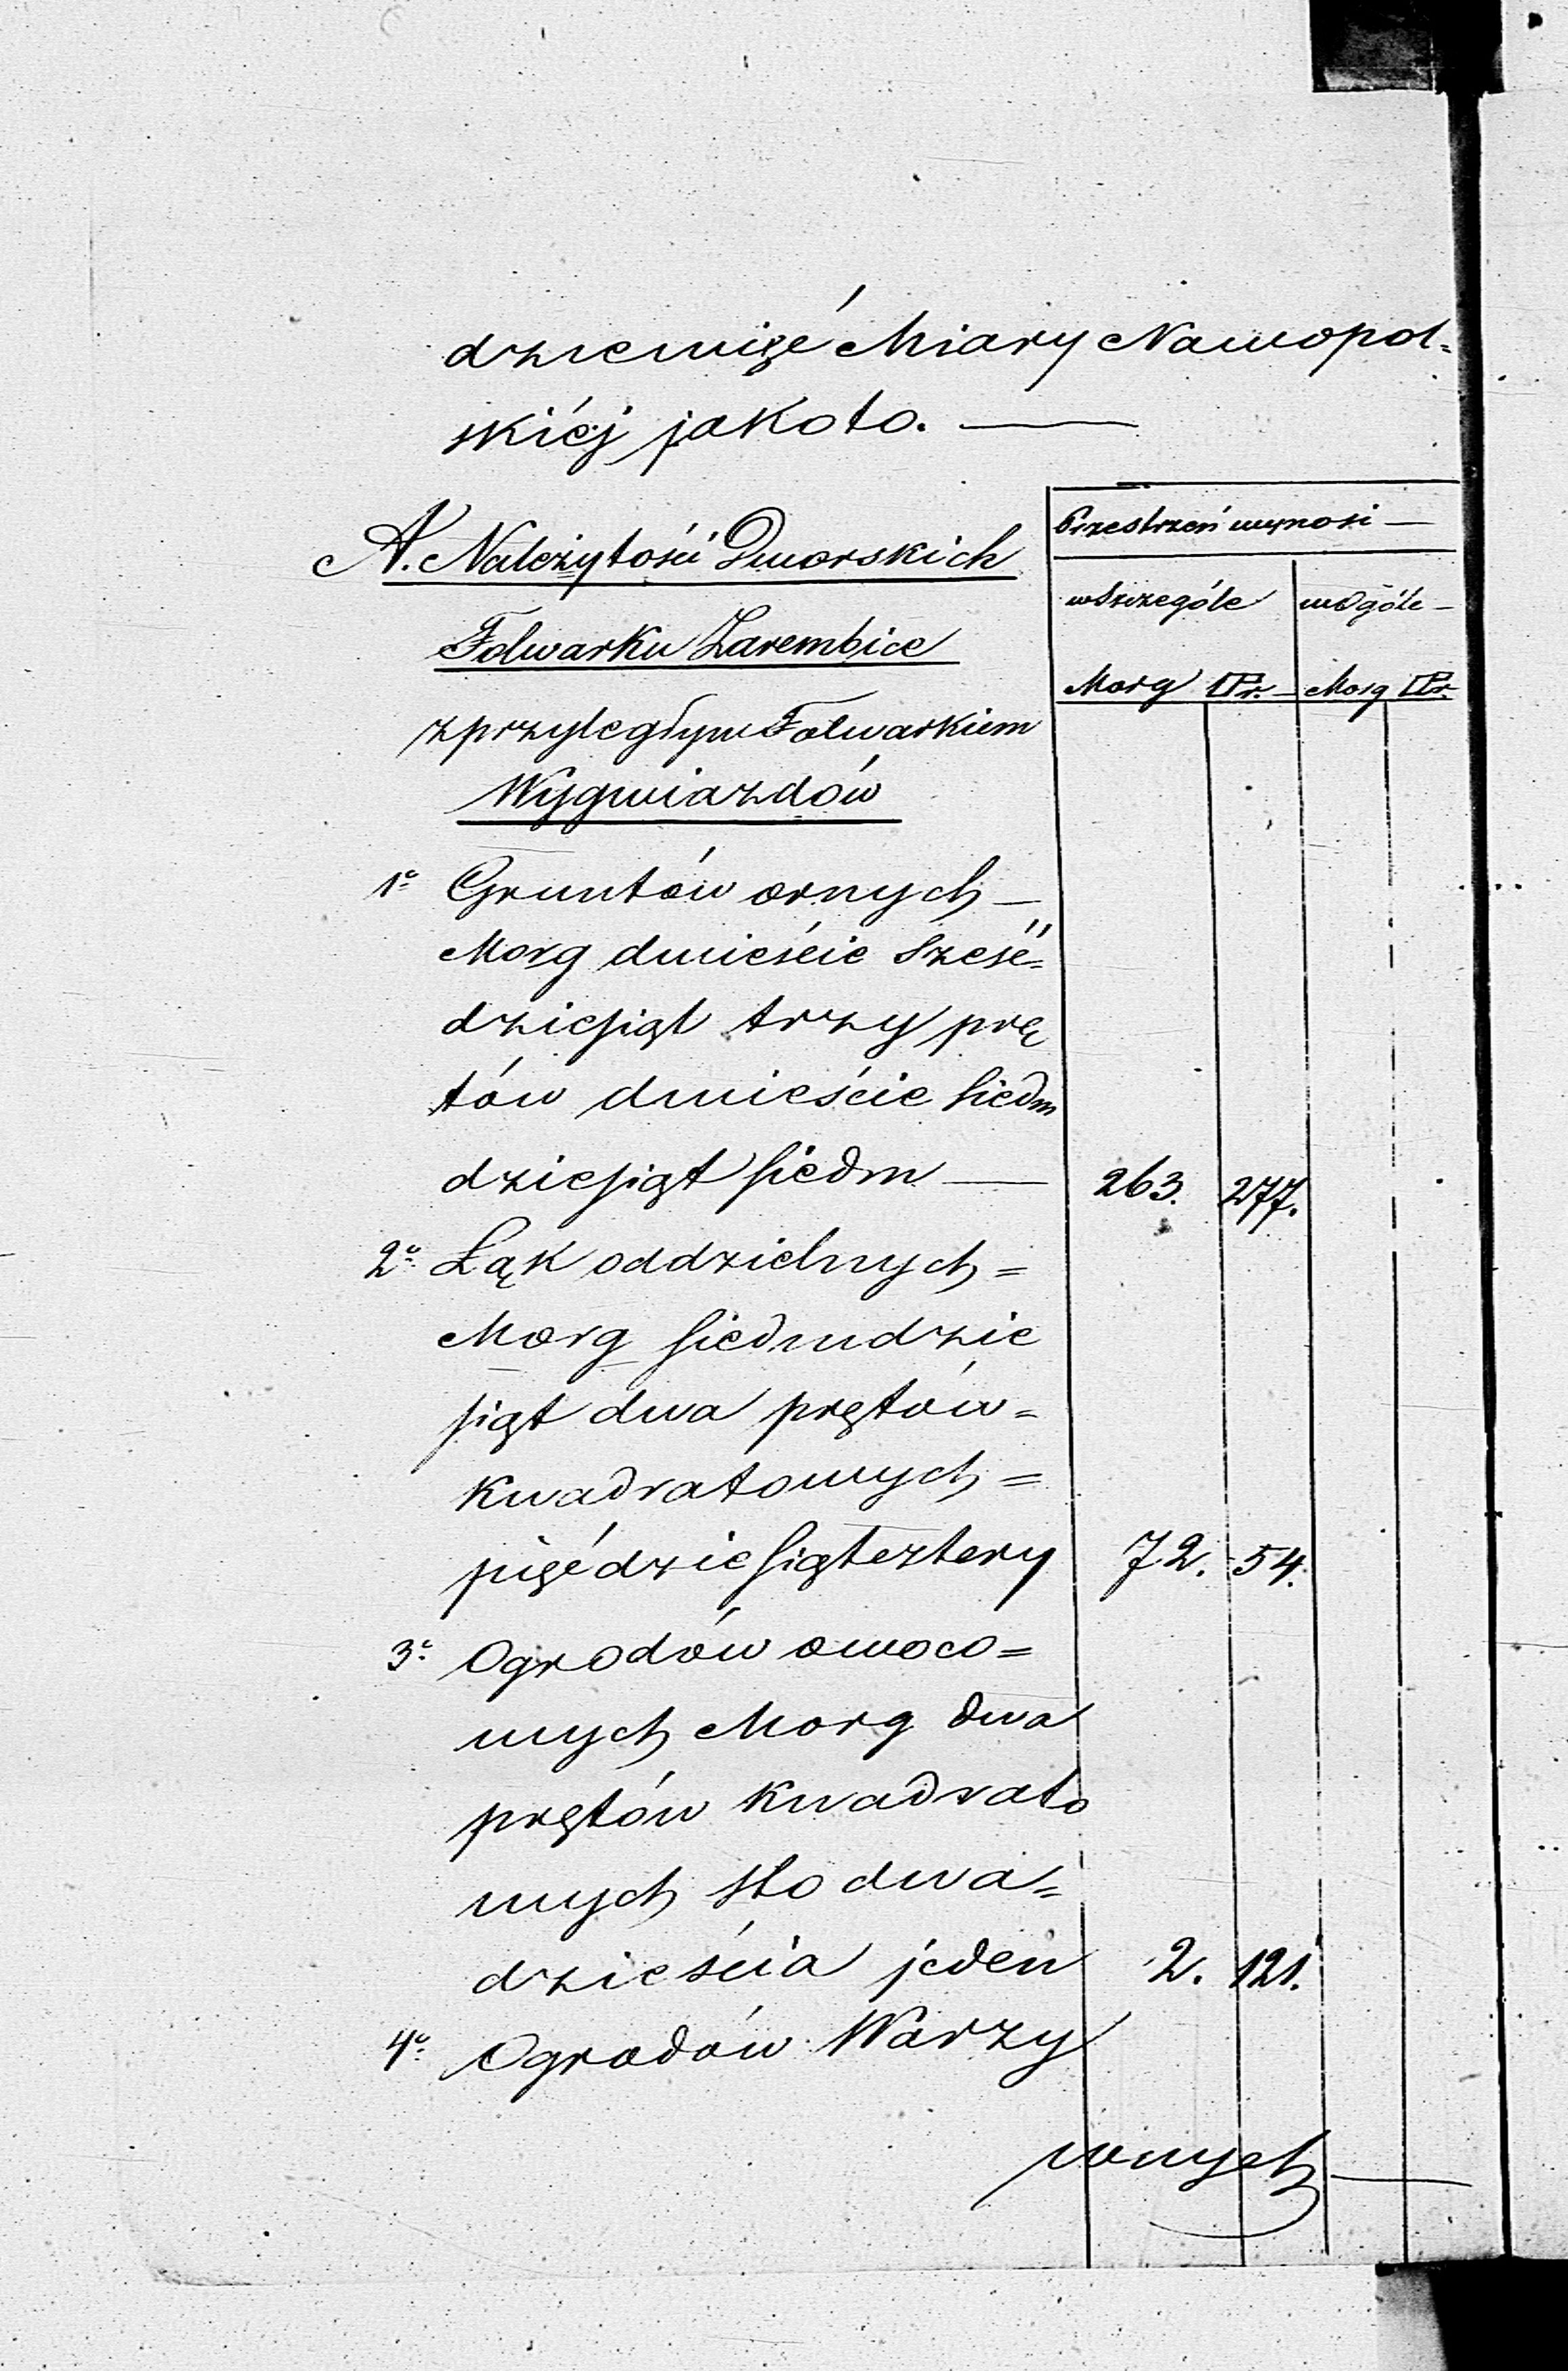 dziewięć Miary Nowopol-
skiéj jakoto. —
A. Należytości Dworskich
Folwarku Zarembice
z przyległym Folwarkiem
Wygwiazdów
Przestrzeń wynosi —
w Szczególe w Ogóle —
Morg □Pr. Morg □Pr.
1º Gruntów ornych —
Morg dwieście Sześć-
dziesiąt trzy prę
tów dwieście siedm
dziesiąt siedm — 263. 277.
2º Łąk oddzielnych =
Morg siedmdzie
siąt dwa prętów =
Kwadratowych =
pięćdziesiąt cztery 72. 54.
3º Ogrodów owoco=
wych Morg dwa
prętów Kwadrato
wych sto dwa=
dzieścia jeden 2. 121.
4º Ogrodów Warzy
wnych —